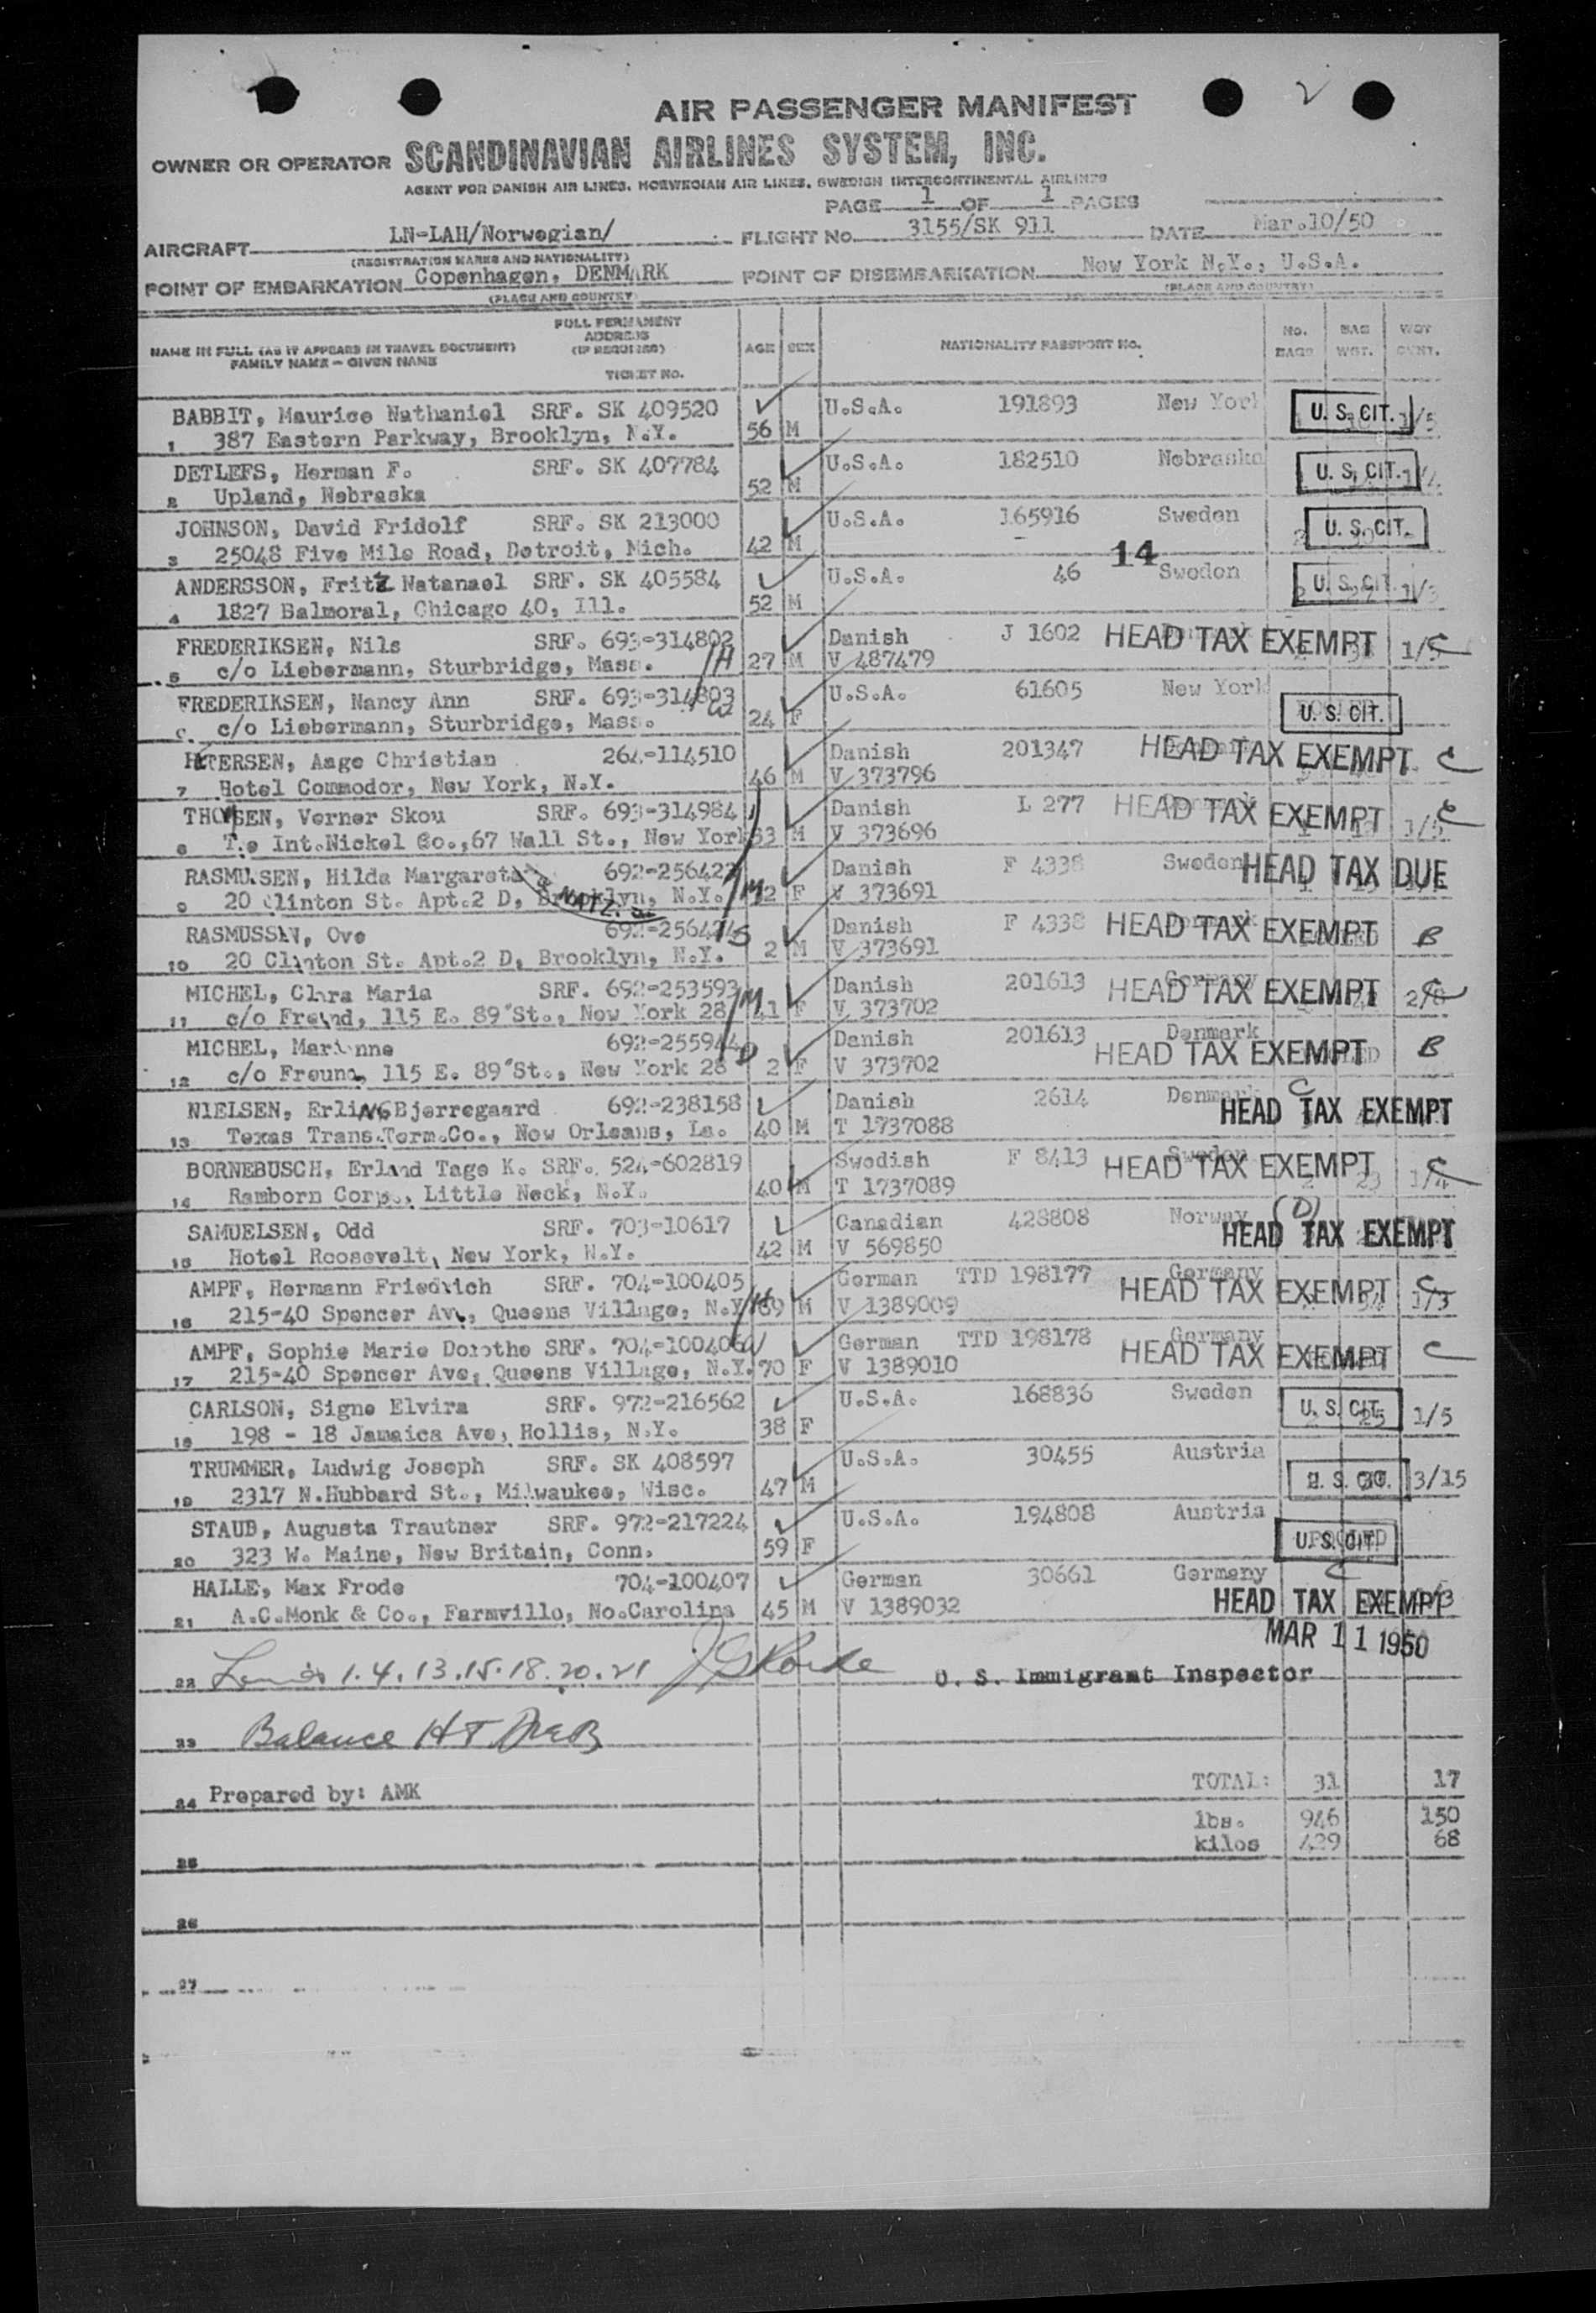 AIR PASSENGER MANIFEST
OWNER OR OPERATOR SCANDINAVIAN AIRLINES SYSTEM, INC.
AGENT FOR DANISH AIR LINES, NORWEGIAN AIR LINES, SWEDISH INTERCONTINENTAL AIRLINES
PAGE 1 OF 1 PAGES
AIRCRAFT LN-LAH/Norwegian/ FLIGHT No. 3155/SK 911 DATE Mar.10/50
(REGISTRATION MARKS AND NATIONALITY)
POINT OF EMBARKATION Copenhagen, DENMARK POINT OF DISEMBARKATION New York N.Y., U.S.A.
(PLACE AND COUNTRY) (PLACE AND COUNTRY)
NAME IN FULL (AS IT APPEARS IN TRAVEL DOCUMENT) FAMILY NAME - GIVEN NAME
FULL PERMANENT ADDRESS (IF REQUIRED) TICKET NO.
AGE SEX NATIONALITY PASSPORT No. No. BAGS BAG WGT.
BABBIT, Maurice Nathaniel SRF. SK 409520 U.S.A. 191893 New York U. S. CIT. 1/5
1 387 Eastern Parkway, Brooklyn, N.Y. 56 M
DETLEFS, Herman F. SRF. SK 407784 U.S.A. 182510 Nebraska U. S. CIT.
2 Upland, Nebraska 52 M
JOHNSON, David Fridolf SRF. SK 213000 U.S.A. 165916 Sweden U. S. CIT.
3 25048 Five Mile Road, Detroit, Mich. 42 M
14
ANDERSSON, Fritz Natanael SRF. SK 405584 U.S.A. 46 Sweden U. S. CIT. 1/3
4 1827 Balmoral, Chicago 40, Ill. 52 M
FREDERIKSEN, Nils SRF. 693-314802 Danish J 1602 HEAD TAX EXEMPT 1/5
5 c/o Liebermann, Sturbridge, Mass. /H 27 M V 487479
FREDERIKSEN, Nancy Ann SRF. 693-314803 U.S.A. 61605 New York U. S. CIT.
c/o Liebermann, Sturbridge, Mass. W 24 F
PETERSEN, Aage Christian 264-114510 Danish 201347 HEAD TAX EXEMPT C
7 Hotel Commodor, New York, N.Y. 46 M V 373796
THOMSEN, Verner Skou SRF. 693-314984 Danish L 277 HEAD TAX EXEMPT C 1/5
8 T.e Int.Nickel Co.,67 Wall St., New York 53 M V 373696
RASMUSSEN, Hilda Margareta 692-256423 Danish F 4338 Sweden HEAD TAX DUE
9 20 Clinton St. Apt.2 D, Brooklyn, N.Y. /M F V 373691
RASMUSSEN, Ove 692-256424 Danish F 4338 HEAD TAX EXEMPT B
10 20 Clinton St. Apt.2 D, Brooklyn, N.Y. /S 2 M V 373691
MICHEL, Clara Maria SRF. 692-253593 Danish 201613 Germany HEAD TAX EXEMPT
11 c/o Freund, 115 E. 89"St., New York 28 /M 41 F V 373702
MICHEL, Marianne 692-255944 Danish 201613 Denmark HEAD TAX EXEMPT B
12 c/o Freund, 115 E. 89"St., New York 28 /D 2 F V 373702
NIELSEN, ErliNG Bjerregaard 692-238158 Danish 2614 Denmark C HEAD TAX EXEMPT
13 Texas Trans.Term.Co., New Orleans, La. 40 M T 1737088
BORNEBUSCH, Erland Tage K. SRF. 524-602819 Swedish F 8413 Sweden HEAD TAX EXEMPT C 1/4
14 Ramborn Corp., Little Neck, N.Y. 40 M T 1737089
SAMUELSEN, Odd SRF. 703-10617 Canadian 428808 Norway (D) HEAD TAX EXEMPT
15 Hotel Roosevelt, New York, N.Y. 42 M V 569850
AMPF, Hermann Friedrich SRF. 704-100405 German TTD 198177 Germany HEAD TAX EXEMPT C 1/3
16 215-40 Spencer Av., Queens Village, N.Y. /H 69 M V 1389009
AMPF, Sophie Marie Dorothe SRF. 704-100406 W German TTD 198178 Germany HEAD TAX EXEMPT C
17 215-40 Spencer Ave, Queens Village, N.Y. 70 F V 1389010
CARLSON, Signe Elvira SRF. 972-216562 U.S.A. 168836 Sweden U. S. CIT. 25 1/5
18 198 - 18 Jamaica Ave, Hollis, N.Y. 38 F
TRUMMER, Ludwig Joseph SRF. SK 408597 U.S.A. 30455 Austria U. S. CIT. 3/15
19 2317 N.Hubbard St., Milwaukee, Wisc. 47 M
STAUB, Augusta Trautner SRF. 972-217224 U.S.A. 194808 Austria U. S. CIT.
20 323 W. Maine, New Britain, Conn. 59 F
HALLE, Max Frode 704-100407 German 30661 Germany C HEAD TAX EXEMPT
21 A.C.Monk & Co., Farmville, No.Carolina 45 M V 1389032
MAR 11 1950
22 1.4.13.15.18.20.21 U. S. Immigrant Inspector
23 Balance HT
24 Prepared by: AMK TOTAL: 31 17
lbs. 946 150
25 kilos 429 68
26
27